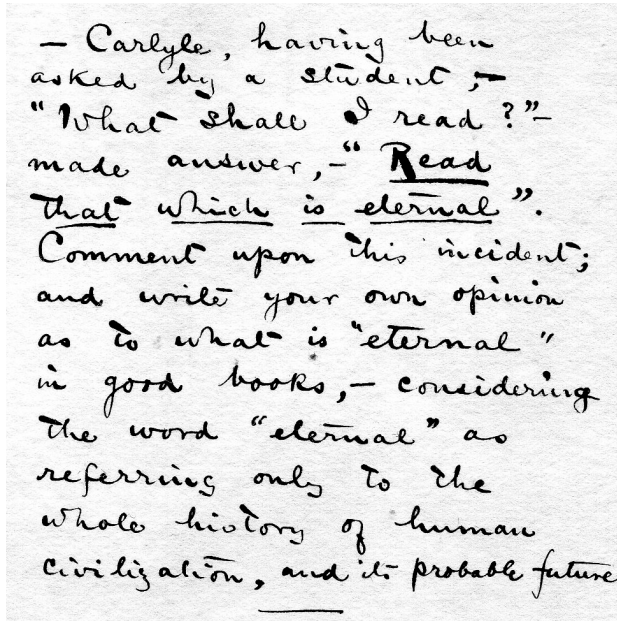 — Carlyle, having been
asked by a student, —
"What shall I read?" —
made answer, — "Read
that which is eternal".
Comment upon this incident;
and write your own opinion
as to what is "eternal"
in good books, — considering
the word "eternal" as
referring only to the
whole history of human
civilization, and its probable future